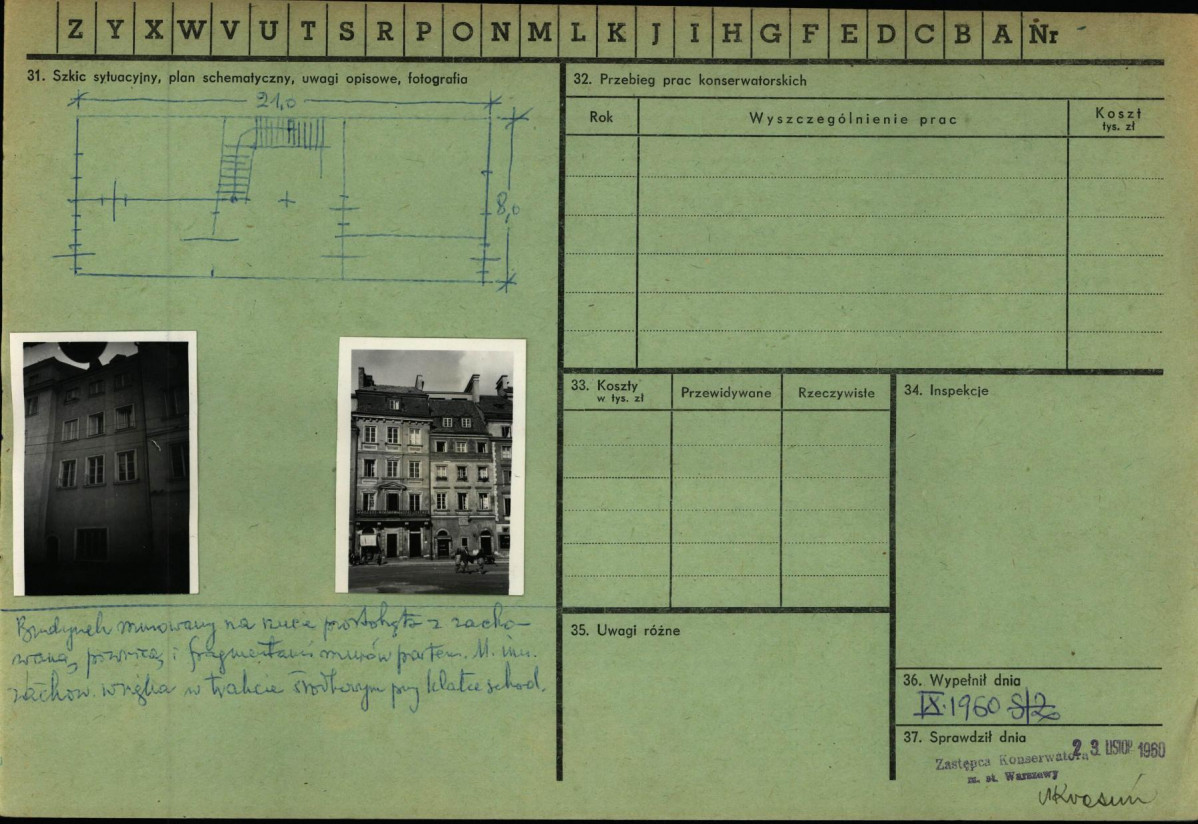 Z Y X W V U T S R P O N M L K J I H G F E D C B A Nr
31. Szkic sytuacyjny, plan schematyczny, uwagi opisowe, fotografia
21,0
8,0
Budynek murowany na rzucie prostokąta z zacho-
waną piwnicą i fragmentami murów parteru. M. inn.
zachow. wnęka w trakcie środkowym przy klatce schod.
32. Przebieg prac konserwatorskich
Rok Wyszczególnienie prac Koszt
tys. zł
33. Koszty Przewidywane Rzeczywiste
w tys. zł
34. Inspekcje
35. Uwagi różne
36. Wypełnił dnia
IX.1960
37. Sprawdził dnia
23 LISTOP 1960
Zastępca Konserwatora
m. st. Warszawy